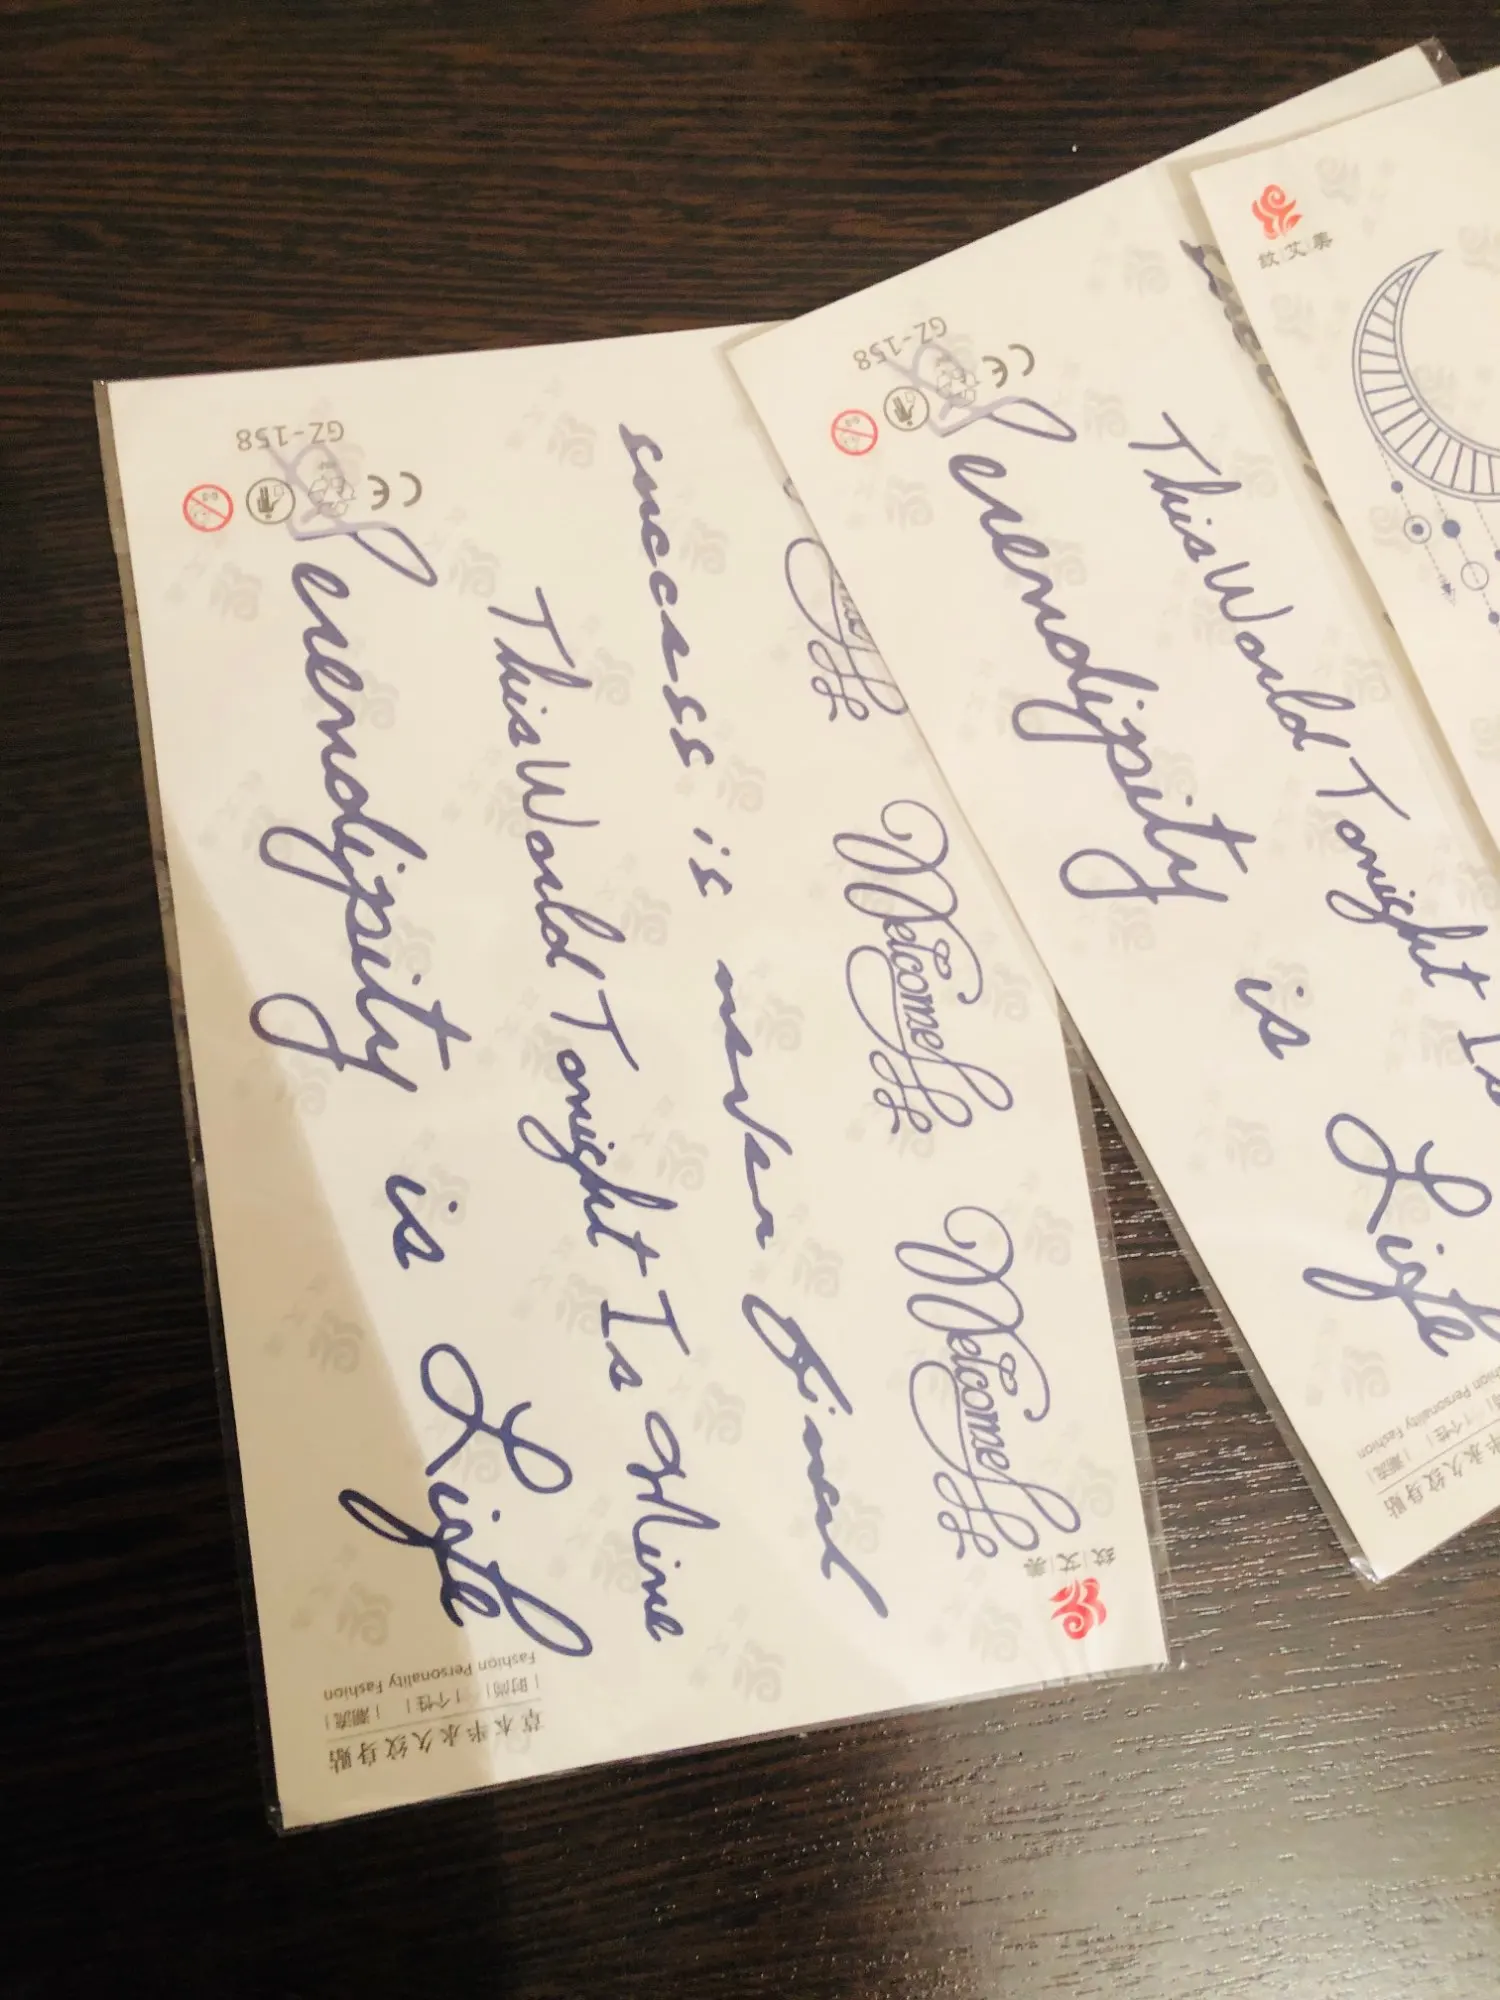 Welcome
Welcome
success is never final
This World Tonight Is Mine
Serendipity is Life
GZ-158
CE
0-3
纹|艾|美
草本半永久纹身贴
|时尚| 个性| |潮流|
Fashion Personality Fashion
This World Tonight Is
Serendipity is Life
GZ-158
CE
半永久纹身贴
个性| |潮流|
Personality Fashion
纹|艾|美